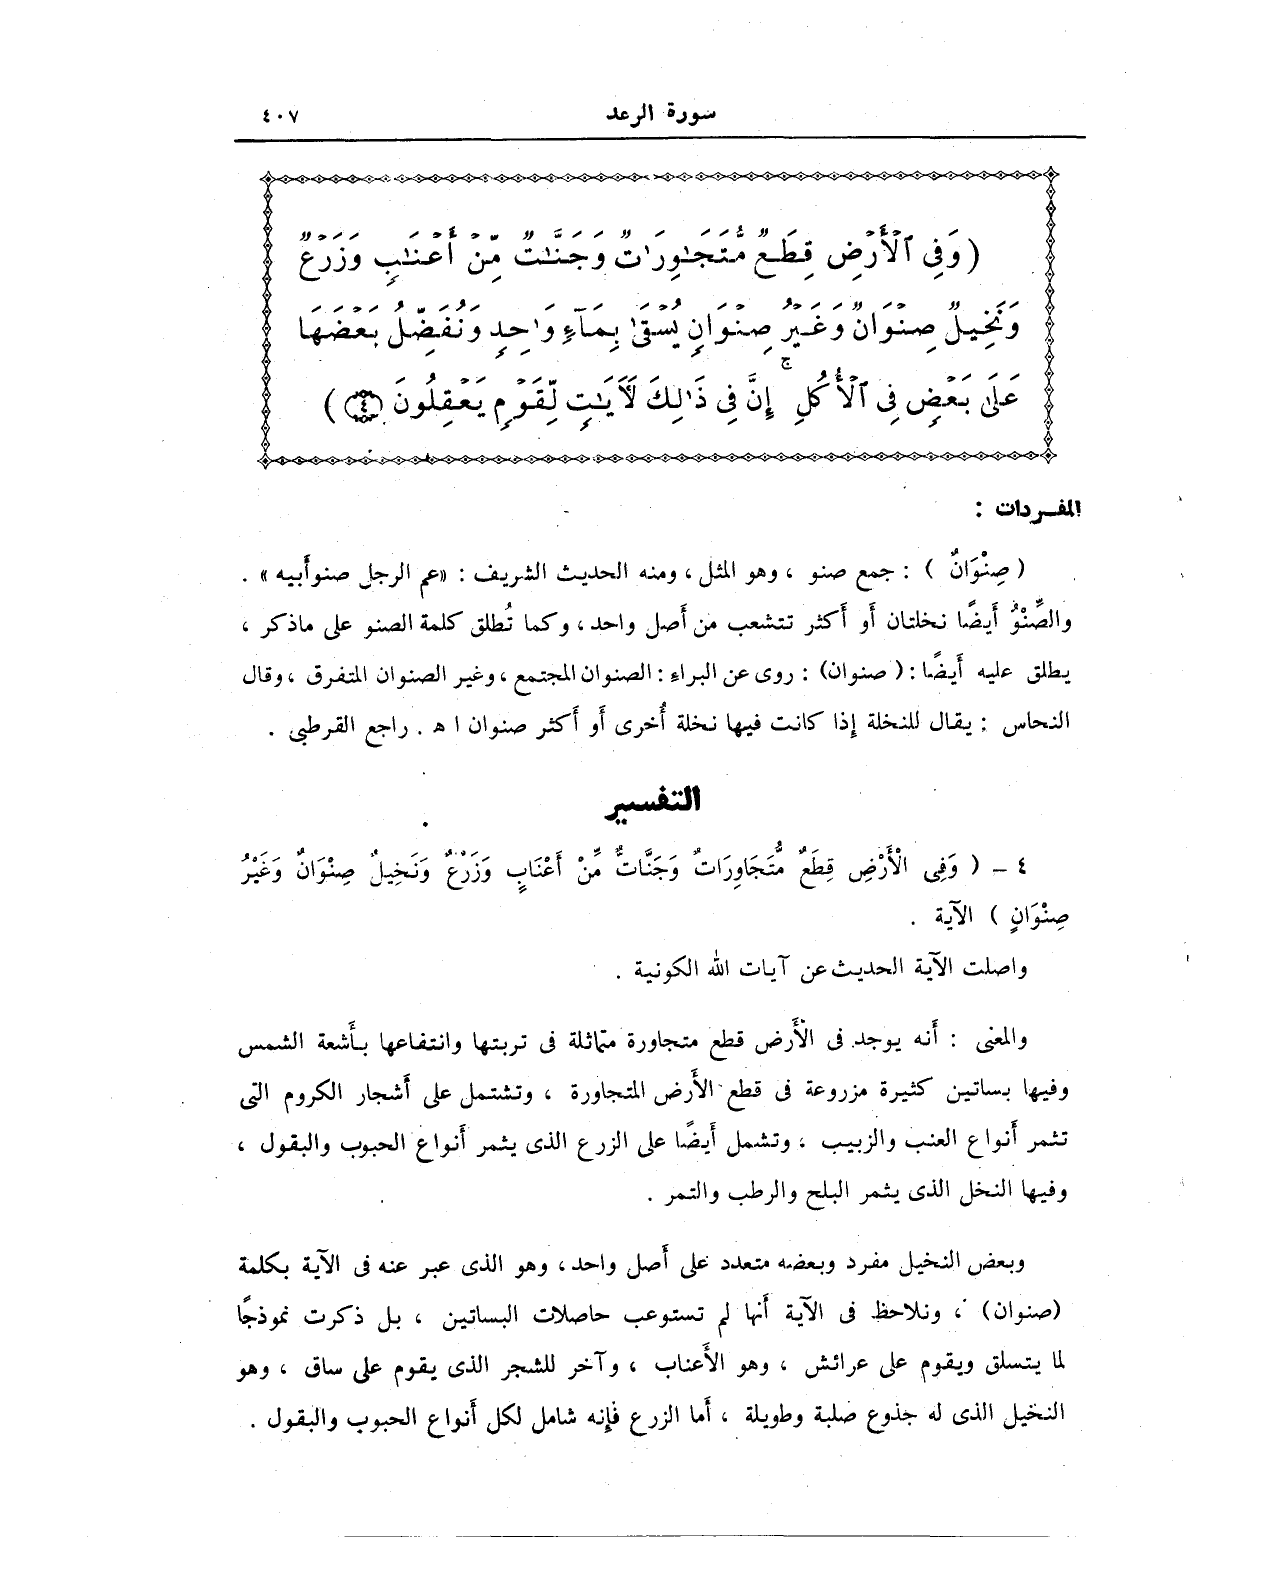 سورة الرعد ٤٠٧
(وَفِى ٱلْأَرْضِ قِطَعٌ مُّتَجَـٰوِرَٰتٌ وَجَنَّـٰتٌ مِّنْ أَعْنَـٰبٍ وَزَرْعٌ
وَنَخِيلٌ صِنْوَانٌ وَغَيْرُ صِنْوَانٍ يُسْقَىٰ بِمَآءٍ وَٰحِدٍ وَنُفَضِّلُ بَعْضَهَا
عَلَىٰ بَعْضٍ فِى ٱلْأُكُلِ ۚ إِنَّ فِى ذَٰلِكَ لَآيَـٰتٍ لِّقَوْمٍ يَعْقِلُونَ ۝٤)
المفـردات :
( صِنْوَانٌ ) : جمع صنو ، وهو المثل ، ومنه الحديث الشريف : «عم الرجل صنو أبيه» .
والصِّنْوُ أيضًا نخلتان أو أكثر تتشعب من أصل واحد ، وكما تُطلق كلمة الصنو على ماذكر ،
يطلق عليه أيضًا : ( صنوان) : روى عن البراء : الصنوان المجتمع ، وغير الصنوان المتفرق ، وقال
النحاس : يقال للنخلة إذا كانت فيها نخلة أُخرى أو أكثر صنوان ا ه . راجع القرطبى .
التفسير
٤ - ( وَفِى الْأَرْضِ قِطَعٌ مُّتَجَاوِرَاتٌ وَجَنَّاتٌ مِّنْ أَعْنَابٍ وَزَرْعٌ وَنَخِيلٌ صِنْوَانٌ وَغَيْرُ
صِنْوَانٍ ) الآية .
واصلت الآية الحديث عن آيات الله الكونية .
والمعنى : أنه يوجد فى الأرض قطع متجاورة متماثلة فى تربتها وانتفاعها بأشعة الشمس
وفيها بساتين كثيرة مزروعة فى قطع الأرض المتجاورة ، وتشتمل على أشجار الكروم التى
تثمر أنواع العنب والزبيب ، وتشمل أيضًا على الزرع الذى يثمر أنواع الحبوب والبقول ،
وفيها النخل الذى يثمر البلح والرطب والتمر .
وبعض النخيل مفرد وبعضه متعدد على أصل واحد ، وهو الذى عبر عنه فى الآية بكلمة
(صنوان) ، ونلاحظ فى الآية أنها لم تستوعب حاصلات البساتين ، بل ذكرت نموذجًا
لما يتسلق ويقوم على عرائش ، وهو الأعناب ، وآخر للشجر الذى يقوم على ساق ، وهو
النخيل الذى له جذوع صلبة وطويلة ، أما الزرع فإنه شامل لكل أنواع الحبوب والبقول .